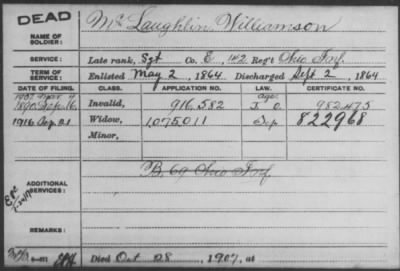 DEAD
NAME OF SOLDIER: McLaughlin, Williamson
SERVICE: Late rank, Sgt Co. E, 142 Reg't Ohio Inf.
TERM OF SERVICE: Enlisted May 2, 1864. Discharged Sept 2, 1864
DATE OF FILING. CLASS. APPLICATION NO. LAW. CERTIFICATE NO.
1890 Sep. 16. Invalid, 916,582 J O. 982475
1916 Widow, 1075011 Sep 822968
Minor,
ADDITIONAL SERVICES: B. 69 Ohio Inf.
REMARKS:
Died Oct 28, 1907, at